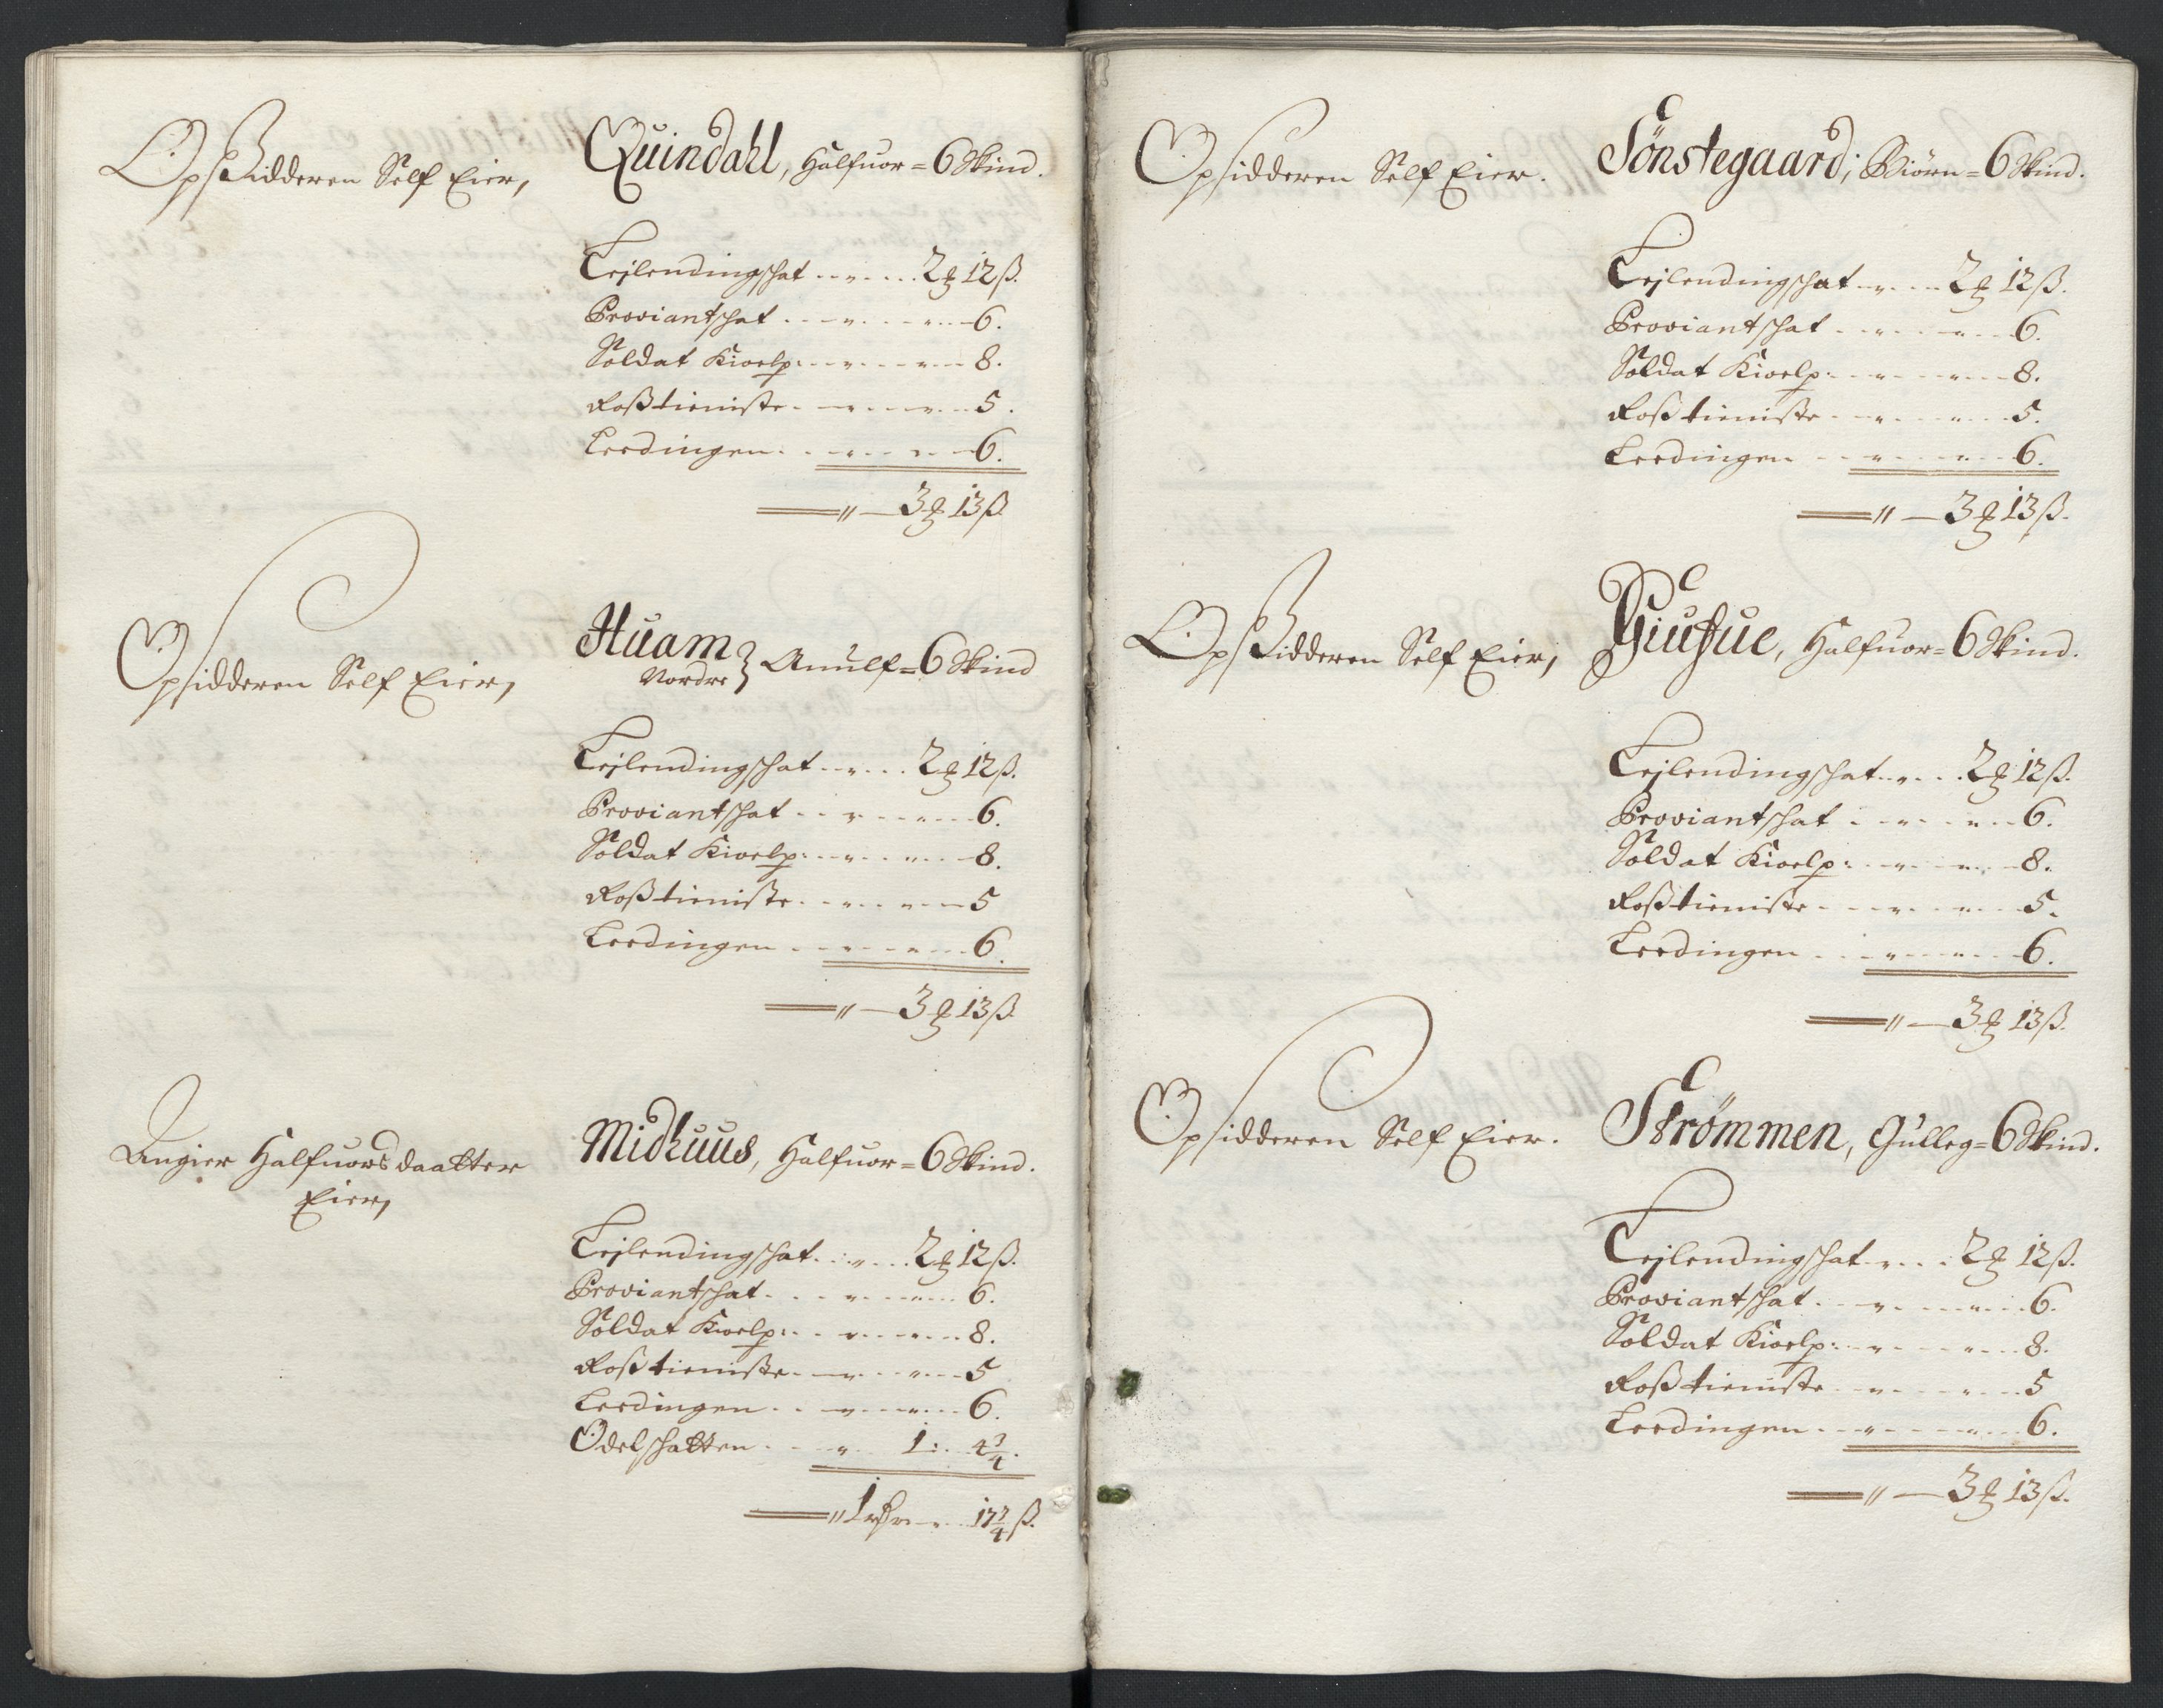 Opsidderen Self Eier, Quindahl, Halfuor = 6 Skind.
Lejlendingschat 2 ₰ 12 ß.
Proviantschat 6.
Soldat Kioelp: 8.
Rosstieniste 5.
Leedingen 6.
" — 3 ₰ 13 ß
Opsidderen Self Eier, Huam Nordre } Anulf = 6 Skind
Lejlendingschat 2 ₰ 12 ß.
Proviantschat 6.
Soldat Kioelp: 8.
Rosstieniste 5
Leedingen 6.
" — 3 ₰ 13 ß
Angier Halfuors daatter Midhuus, Halfuor = 6 Skind.
Eier,
Lejlendingschat 2 ₰ 12 ß.
Proviantschat 6.
Soldat Kioelp: 8.
Rosstieniste 5
Leedingen 6.
Odelschatten 1: 4 3/4.
" 1 17 3/4 ß.
Opsidderen Self Eier. Sönstegaard, Biörn = 6 Skind.
Lejlendingschat 2 ₰ 12 ß.
Proviantschat 6.
Soldat Kioelp: 8.
Rosstieniste 5.
Leedingen 6.
" — 3 ₰ 13 ß.
Opsidderen Self Eier, Halfuor = 6 Skind.
Lejlendingschat 2 ₰ 12 ß.
Proviantschat 6.
Soldat Kioelp: 8.
Rosstieniste 5.
Leedingen 6.
" — 3 ₰ 13 ß.
Opsidderen Self Eier. Strömmen, Gulleg = 6 Skind.
Lejlendingschat 2 ₰ 12 ß.
Proviantschat 6.
Soldat Kioelp: 8.
Rosstieniste 5
Leedingen 6.
" — 3 ₰ 13 ß.